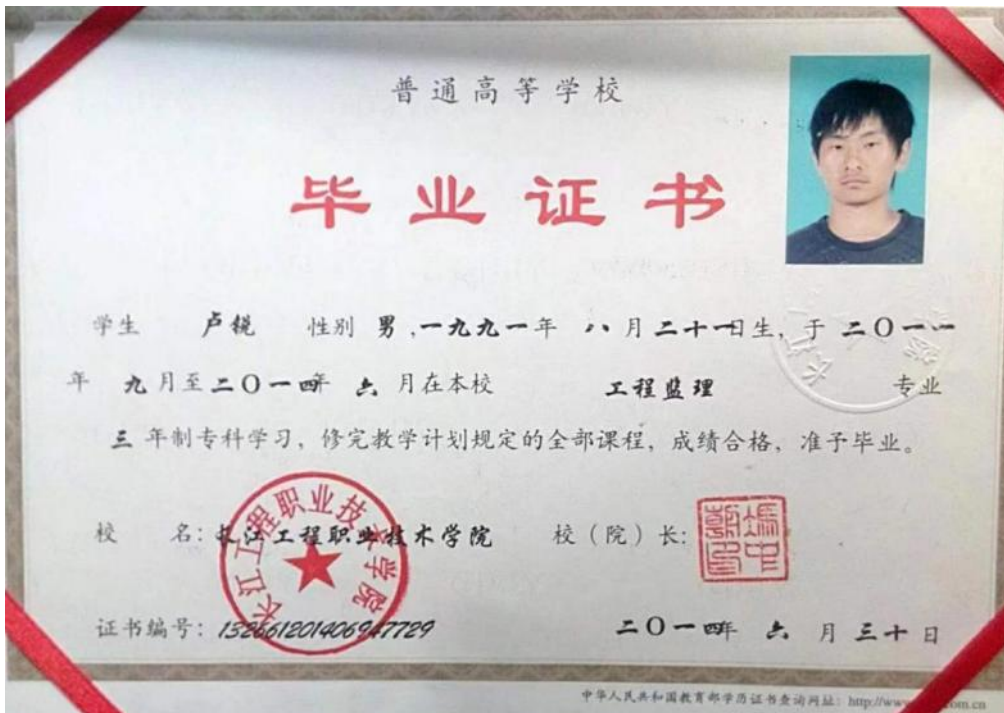 普通高等学校
毕业证书
学生 卢锐 性别 男,一九九一年 八月二十一日生,于 二〇一一
年 九月至二〇一四年 六月在本校 工程监理 专业
三年制专科学习,修完教学计划规定的全部课程,成绩合格,准予毕业。
校 名:长江工程职业技术学院 校(院)长:
长江工程职业技术学院
证书编号:132661201406947729 二〇一四年 六月三十日
中华人民共和国教育部学历证书查询网址:http://www
om.cn